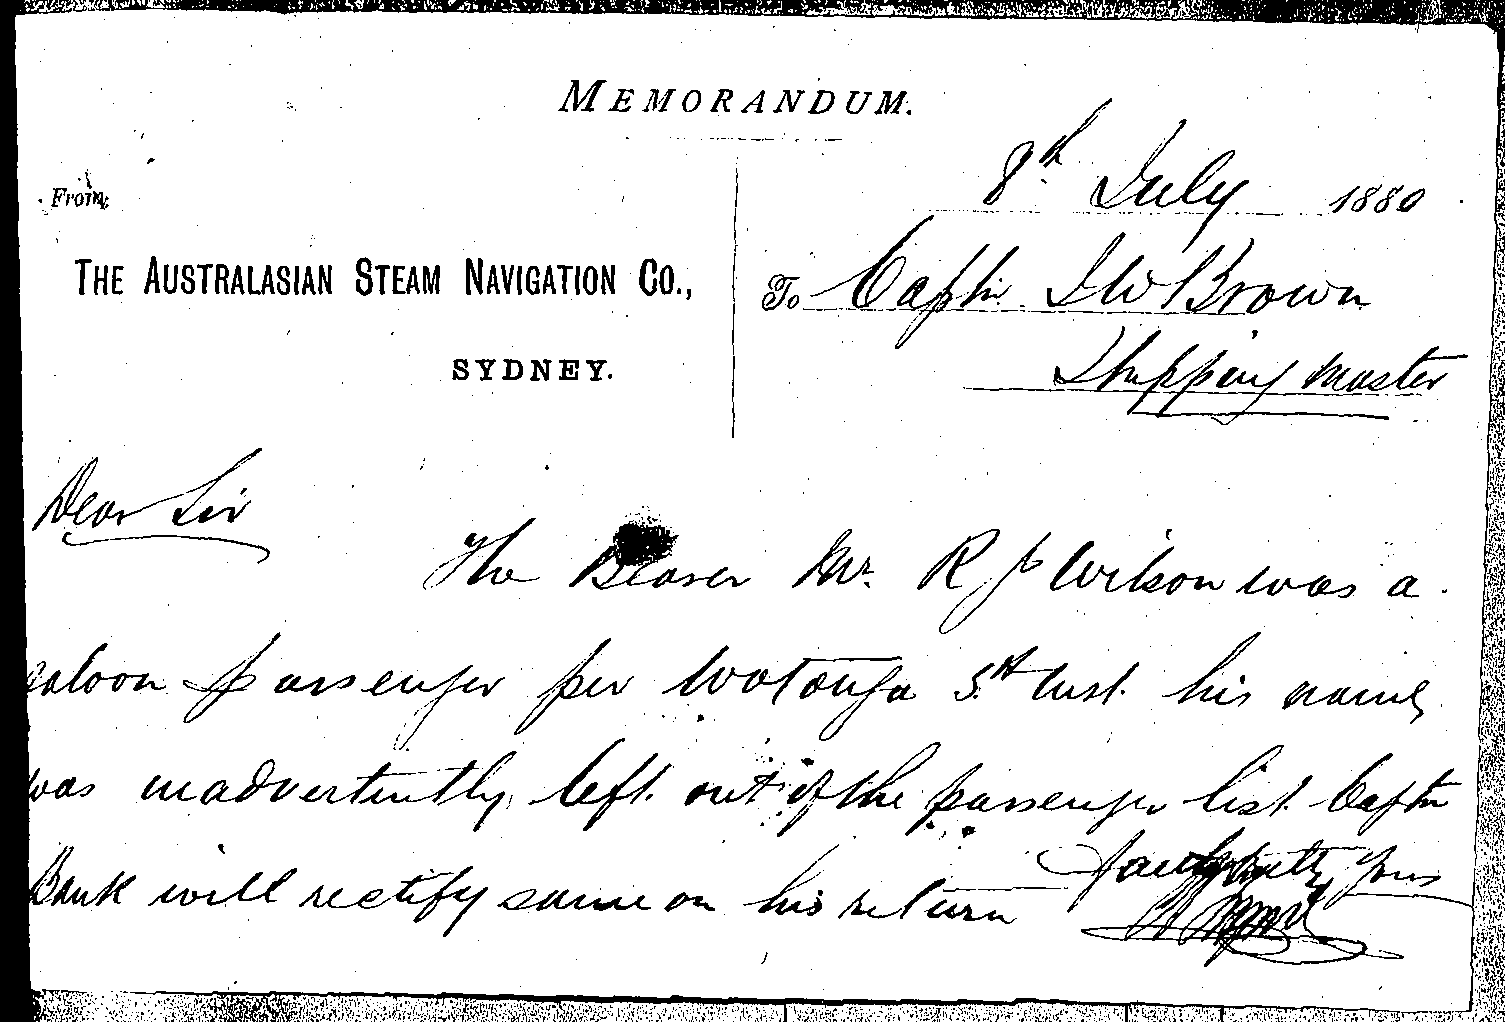 MEMORANDUM.
8th July 1880
From,
THE AUSTRALASIAN STEAM NAVIGATION CO.,
SYDNEY.
To Captn J W Brown
Shipping Master
Dear Sir
The Bearer Mr. R J Wilson was a
saloon passenger per Wotonga 5th Inst. his name
was inadvertently left out of the passenger list Captn
Bank will rectify same on his return
Yours